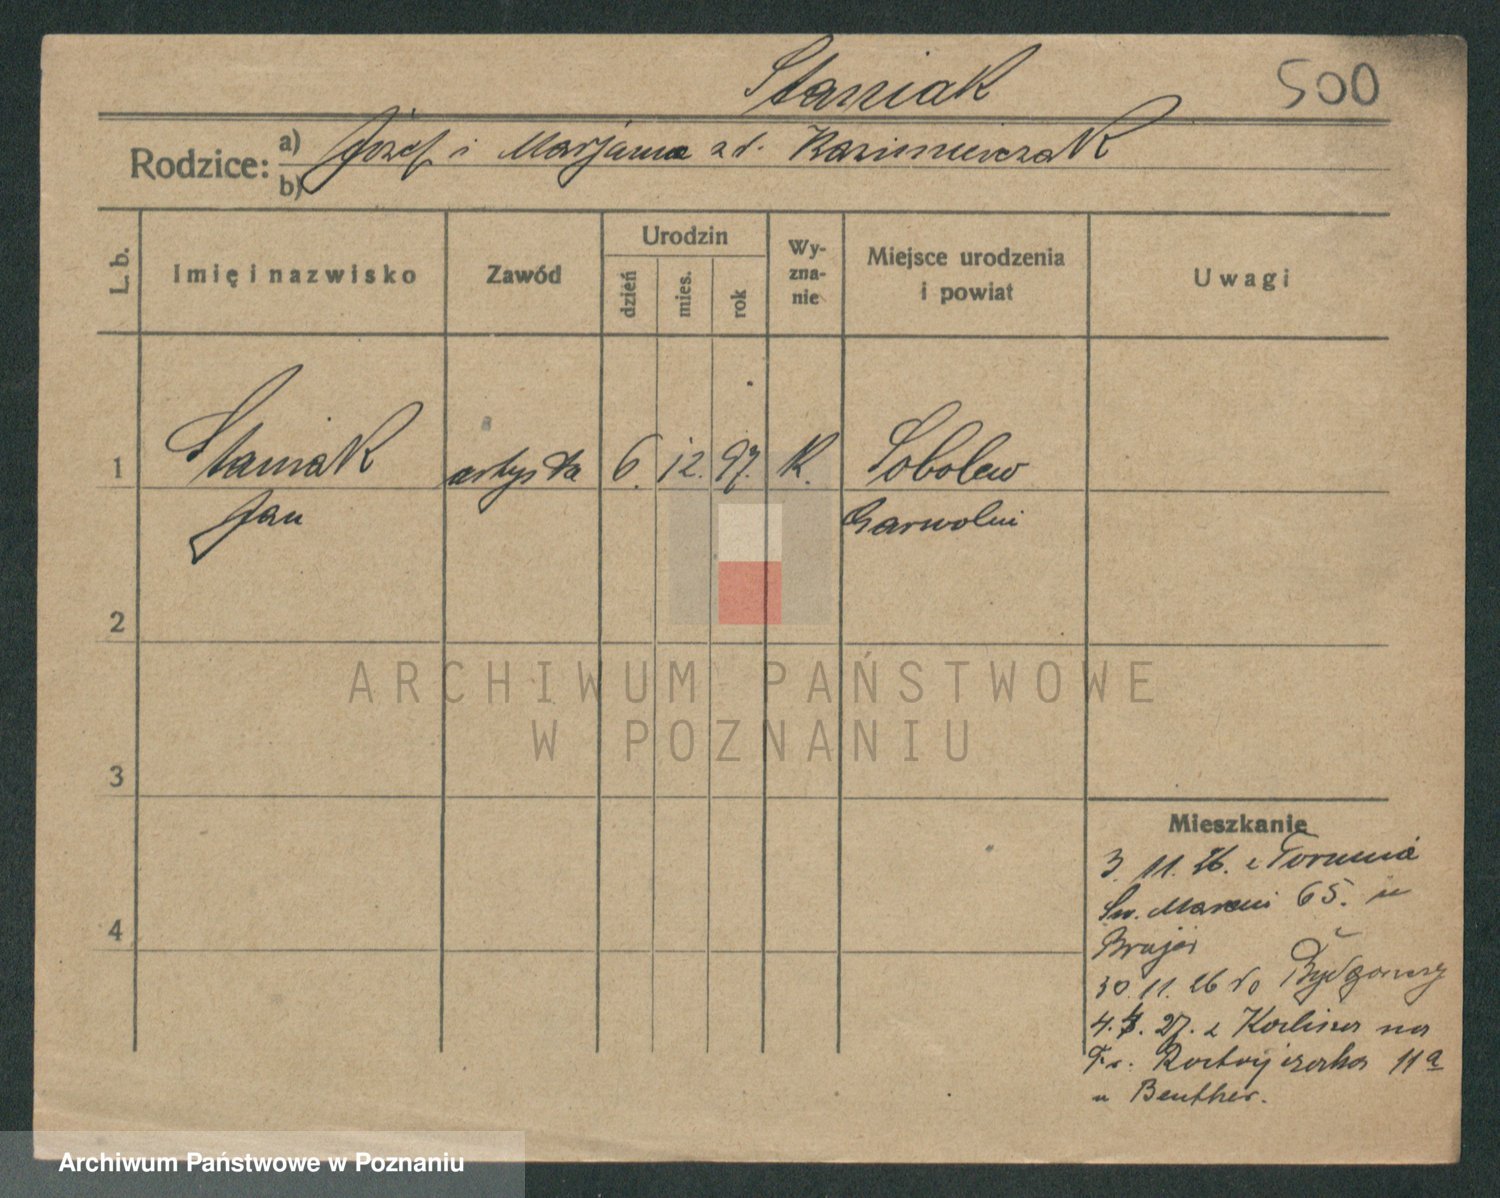 Staniak
500
Rodzice:
a) Józef i Marjanna z d. Kazimierczak
b)
L. b.
Imię i nazwisko
Zawód
Urodzin
dzień
mies.
rok
Wy-
zna-
nie
Miejsce urodzenia
i powiat
Uwagi
1 Staniak artysta 6. 12. 97. K. Sobolew
Jan Garwolin
2
ARCHIWUM PAŃSTWOWE
W POZNANIU
3
Mieszkanie
3. 11. 26. z Torunia
Św. Marcin 65. u
30. 11. 26 do Bydgoszczy
4
4. 4. 27. z na
Fr. Ratajczaka 11a
u Beuther.
Archiwum Państwowe w Poznaniu